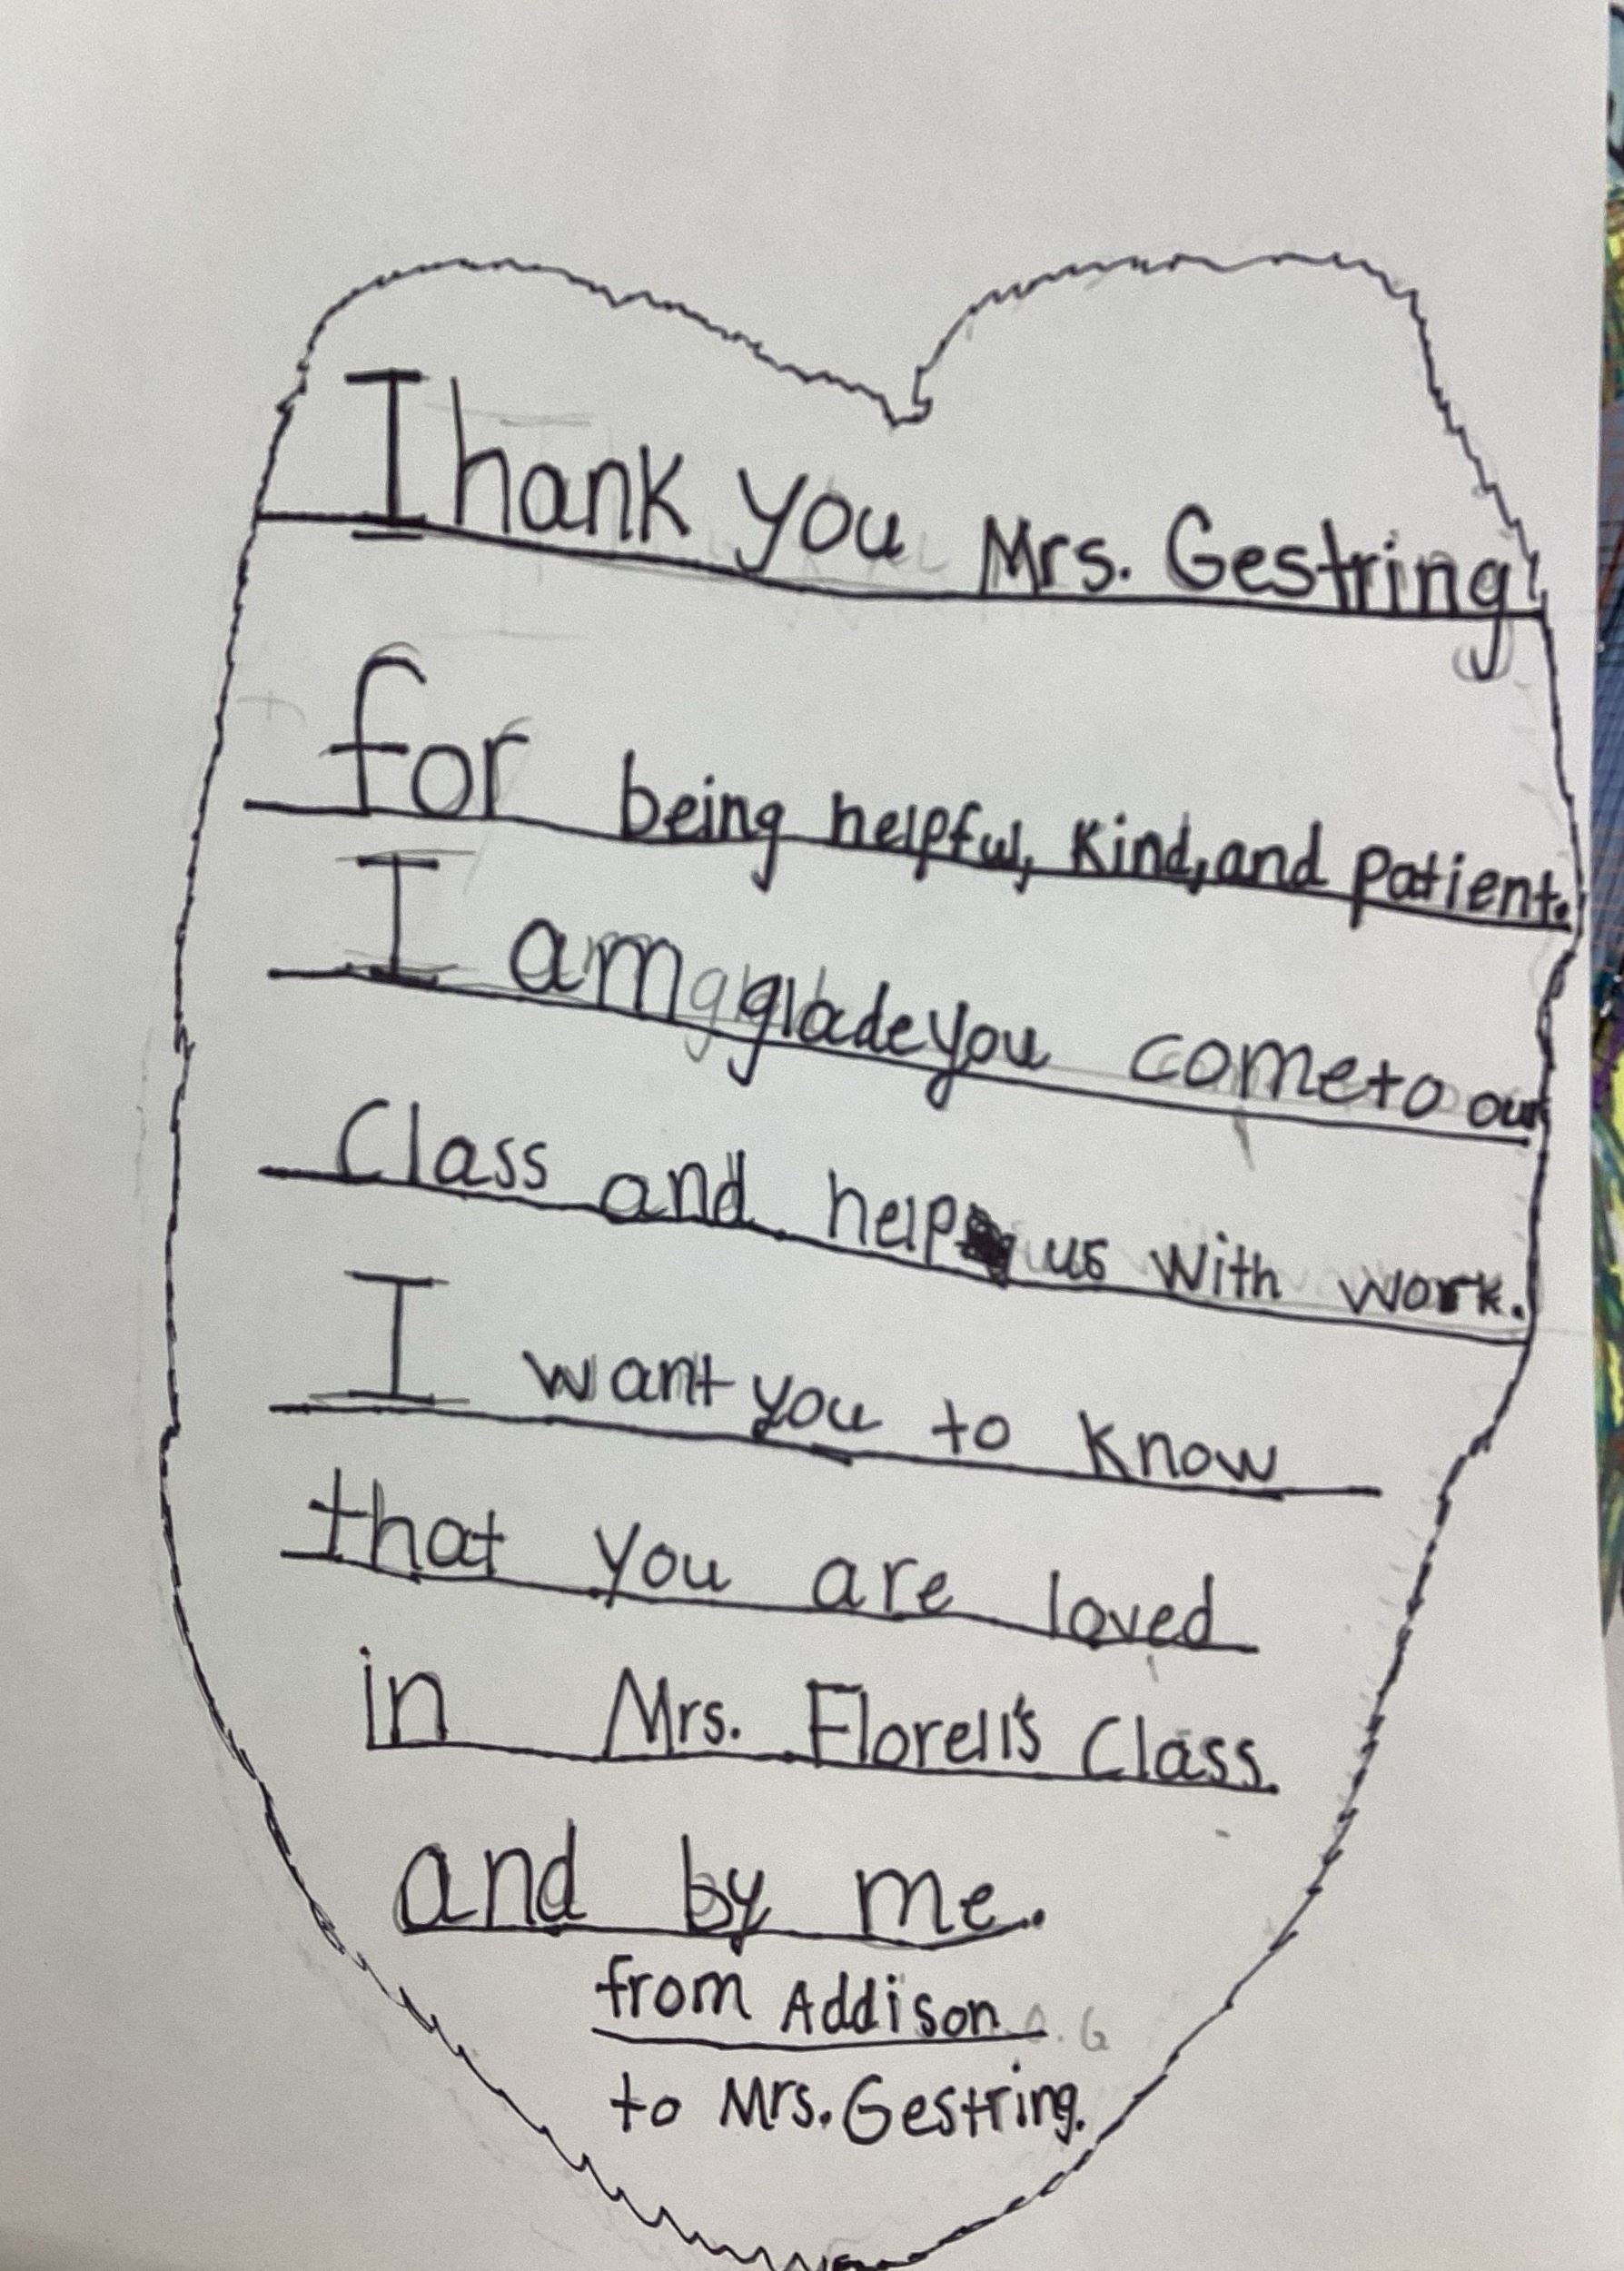 Thank you Mrs. Gestring!
for being helpful, kind, and patient.
I am glade you come to our
Class and help us with work.
I want you to know
that you are loved
in Mrs. Florell's Class.
and by me.
from Addison
to Mrs. Gestring.